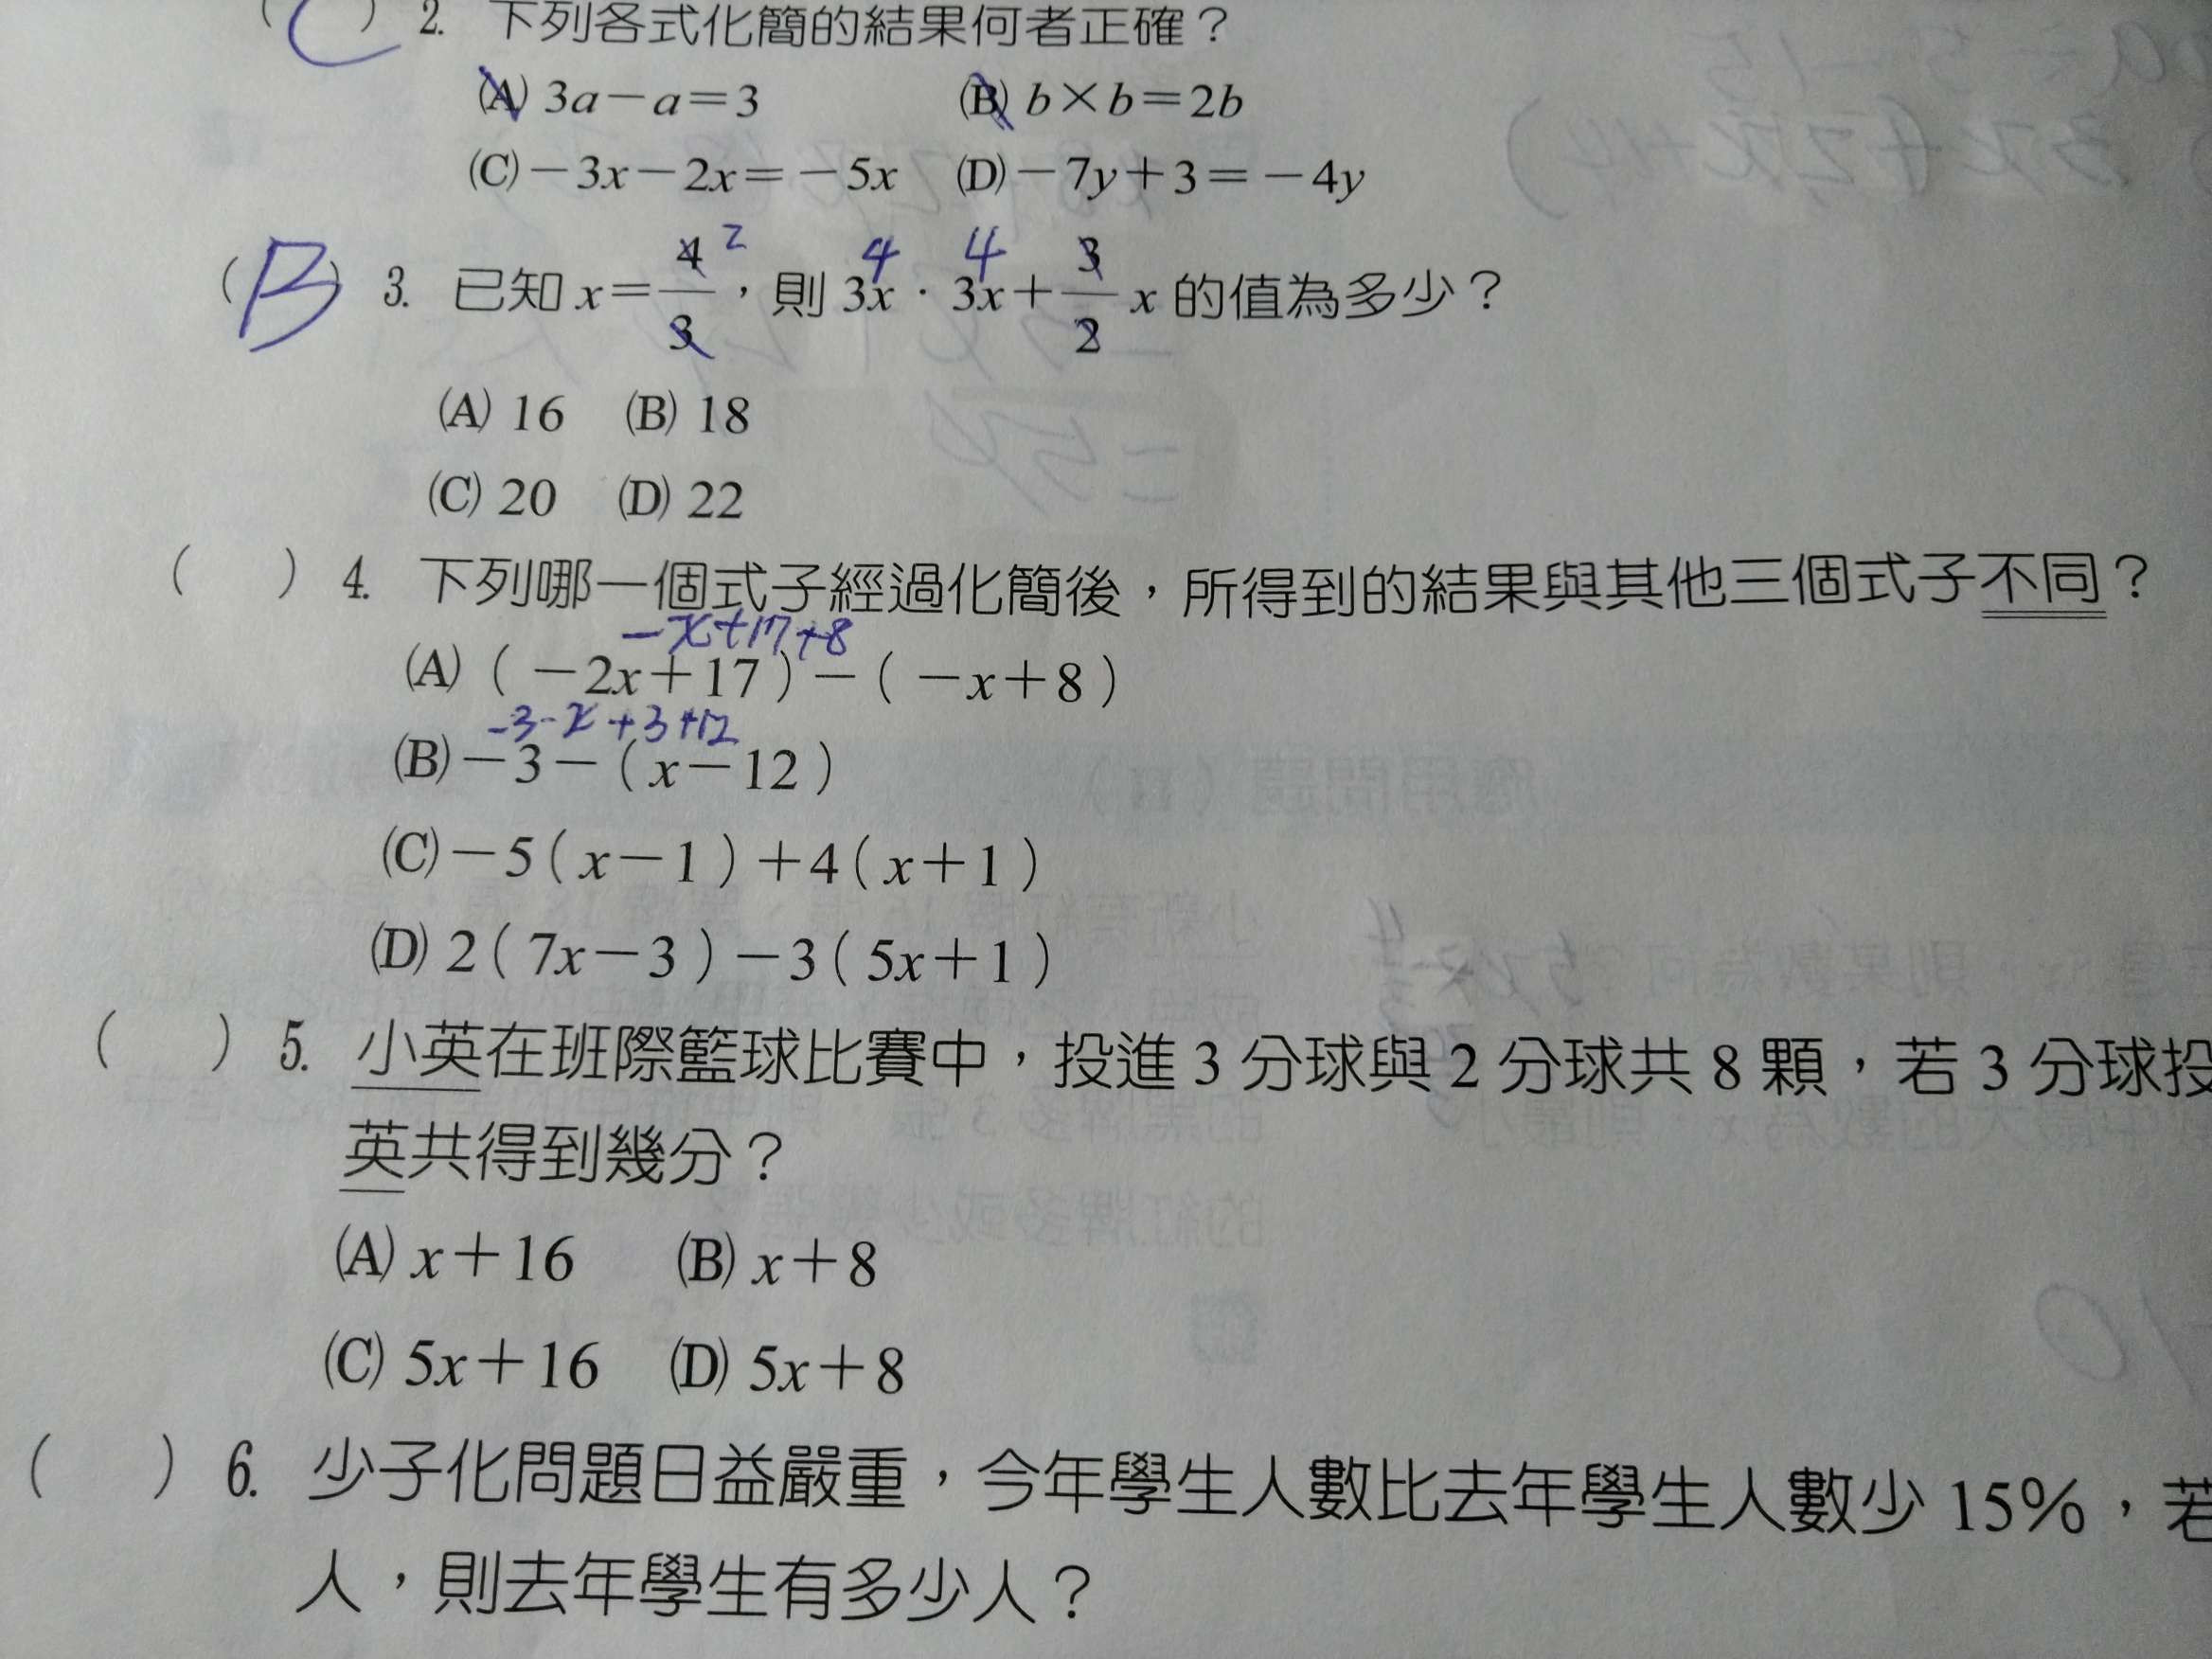 (C) 2. 下列各式化簡的結果何者正確？
(A) 3a－a＝3 (B) b×b＝2b
(C)－3x－2x＝－5x (D)－7y＋3＝－4y
(B) 3. 已知 x＝4/3，則 3x · 3x＋3/2 x 的值為多少？
2 4 4
(A) 16 (B) 18
(C) 20 (D) 22
( ) 4. 下列哪一個式子經過化簡後，所得到的結果與其他三個式子不同？
-x+17+8
(A)（－2x＋17）－（－x＋8）
-3-x+3+12
(B)－3－（x－12）
(C)－5（x－1）＋4（x＋1）
(D) 2（7x－3）－3（5x＋1）
( ) 5. 小英在班際籃球比賽中，投進 3 分球與 2 分球共 8 顆，若 3 分球投
英共得到幾分？
(A) x＋16 (B) x＋8
(C) 5x＋16 (D) 5x＋8
( ) 6. 少子化問題日益嚴重，今年學生人數比去年學生人數少 15%，若
人，則去年學生有多少人？